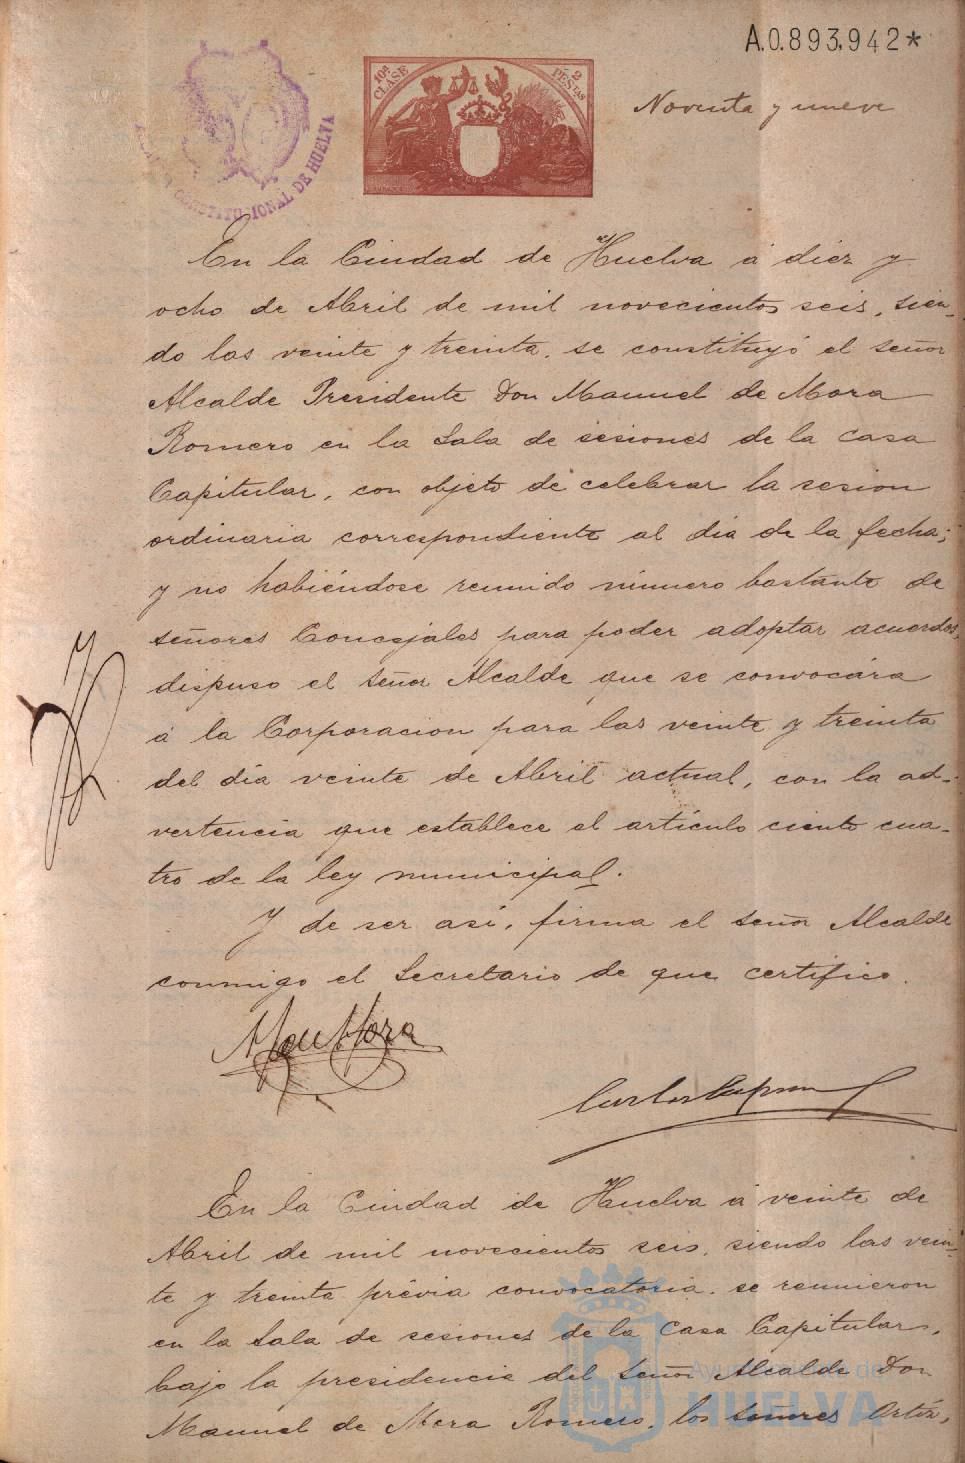 A.0.893,942*
10ª CLASE
2 PESETAS
CONSTITUCIONAL DE HUELVA
Noventa y nueve
En la Ciudad de Huelva á diez y
ocho de Abril de mil novecientos seis, sien-
do las veinte y treinta, se constituyó el señor
Alcalde Presidente Don Manuel de Mora
Romero en la Sala de sesiones de la Casa
Capitular, con objeto de celebrar la sesion
ordinaria correspondiente al dia de la fecha;
y no habiéndose reunido número bastante de
señores Concejales para poder adoptar acuerdos,
dispuso el señor Alcalde que se convocára
á la Corporacion para las veinte y treinta
del dia veinte de Abril actual, con la ad-
vertencia que establece el artículo ciento cua-
tro de la ley municipal.
Y de ser asi, firma el señor Alcalde
conmigo el Secretario de que certifico.
Man Mora
Carlos
En la Ciudad de Huelva á veinte de
Abril de mil novecientos seis, siendo las vein-
te y treinta prévia convocatoria, se reunieron
en la Sala de sesiones de la Casa Capitular,
bajo la presidencia del Señor Alcalde Don
Manuel de Mora Romero, los señores Ortiz,
Ayuntamiento de
HUELVA